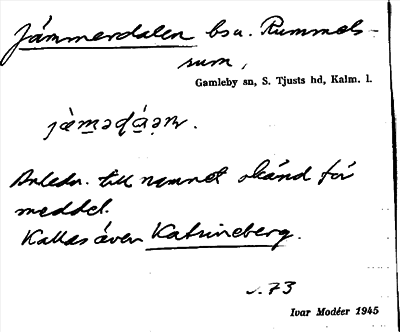 Jämmerdalen bsa. Rummels-
sum,
Gamleby sn, S. Tjusts hd, Kalm. l.
Anledn. till namnet okänd för
meddel.
Kallas även Katrineberg.
s. 73
Ivar Modéer 1945